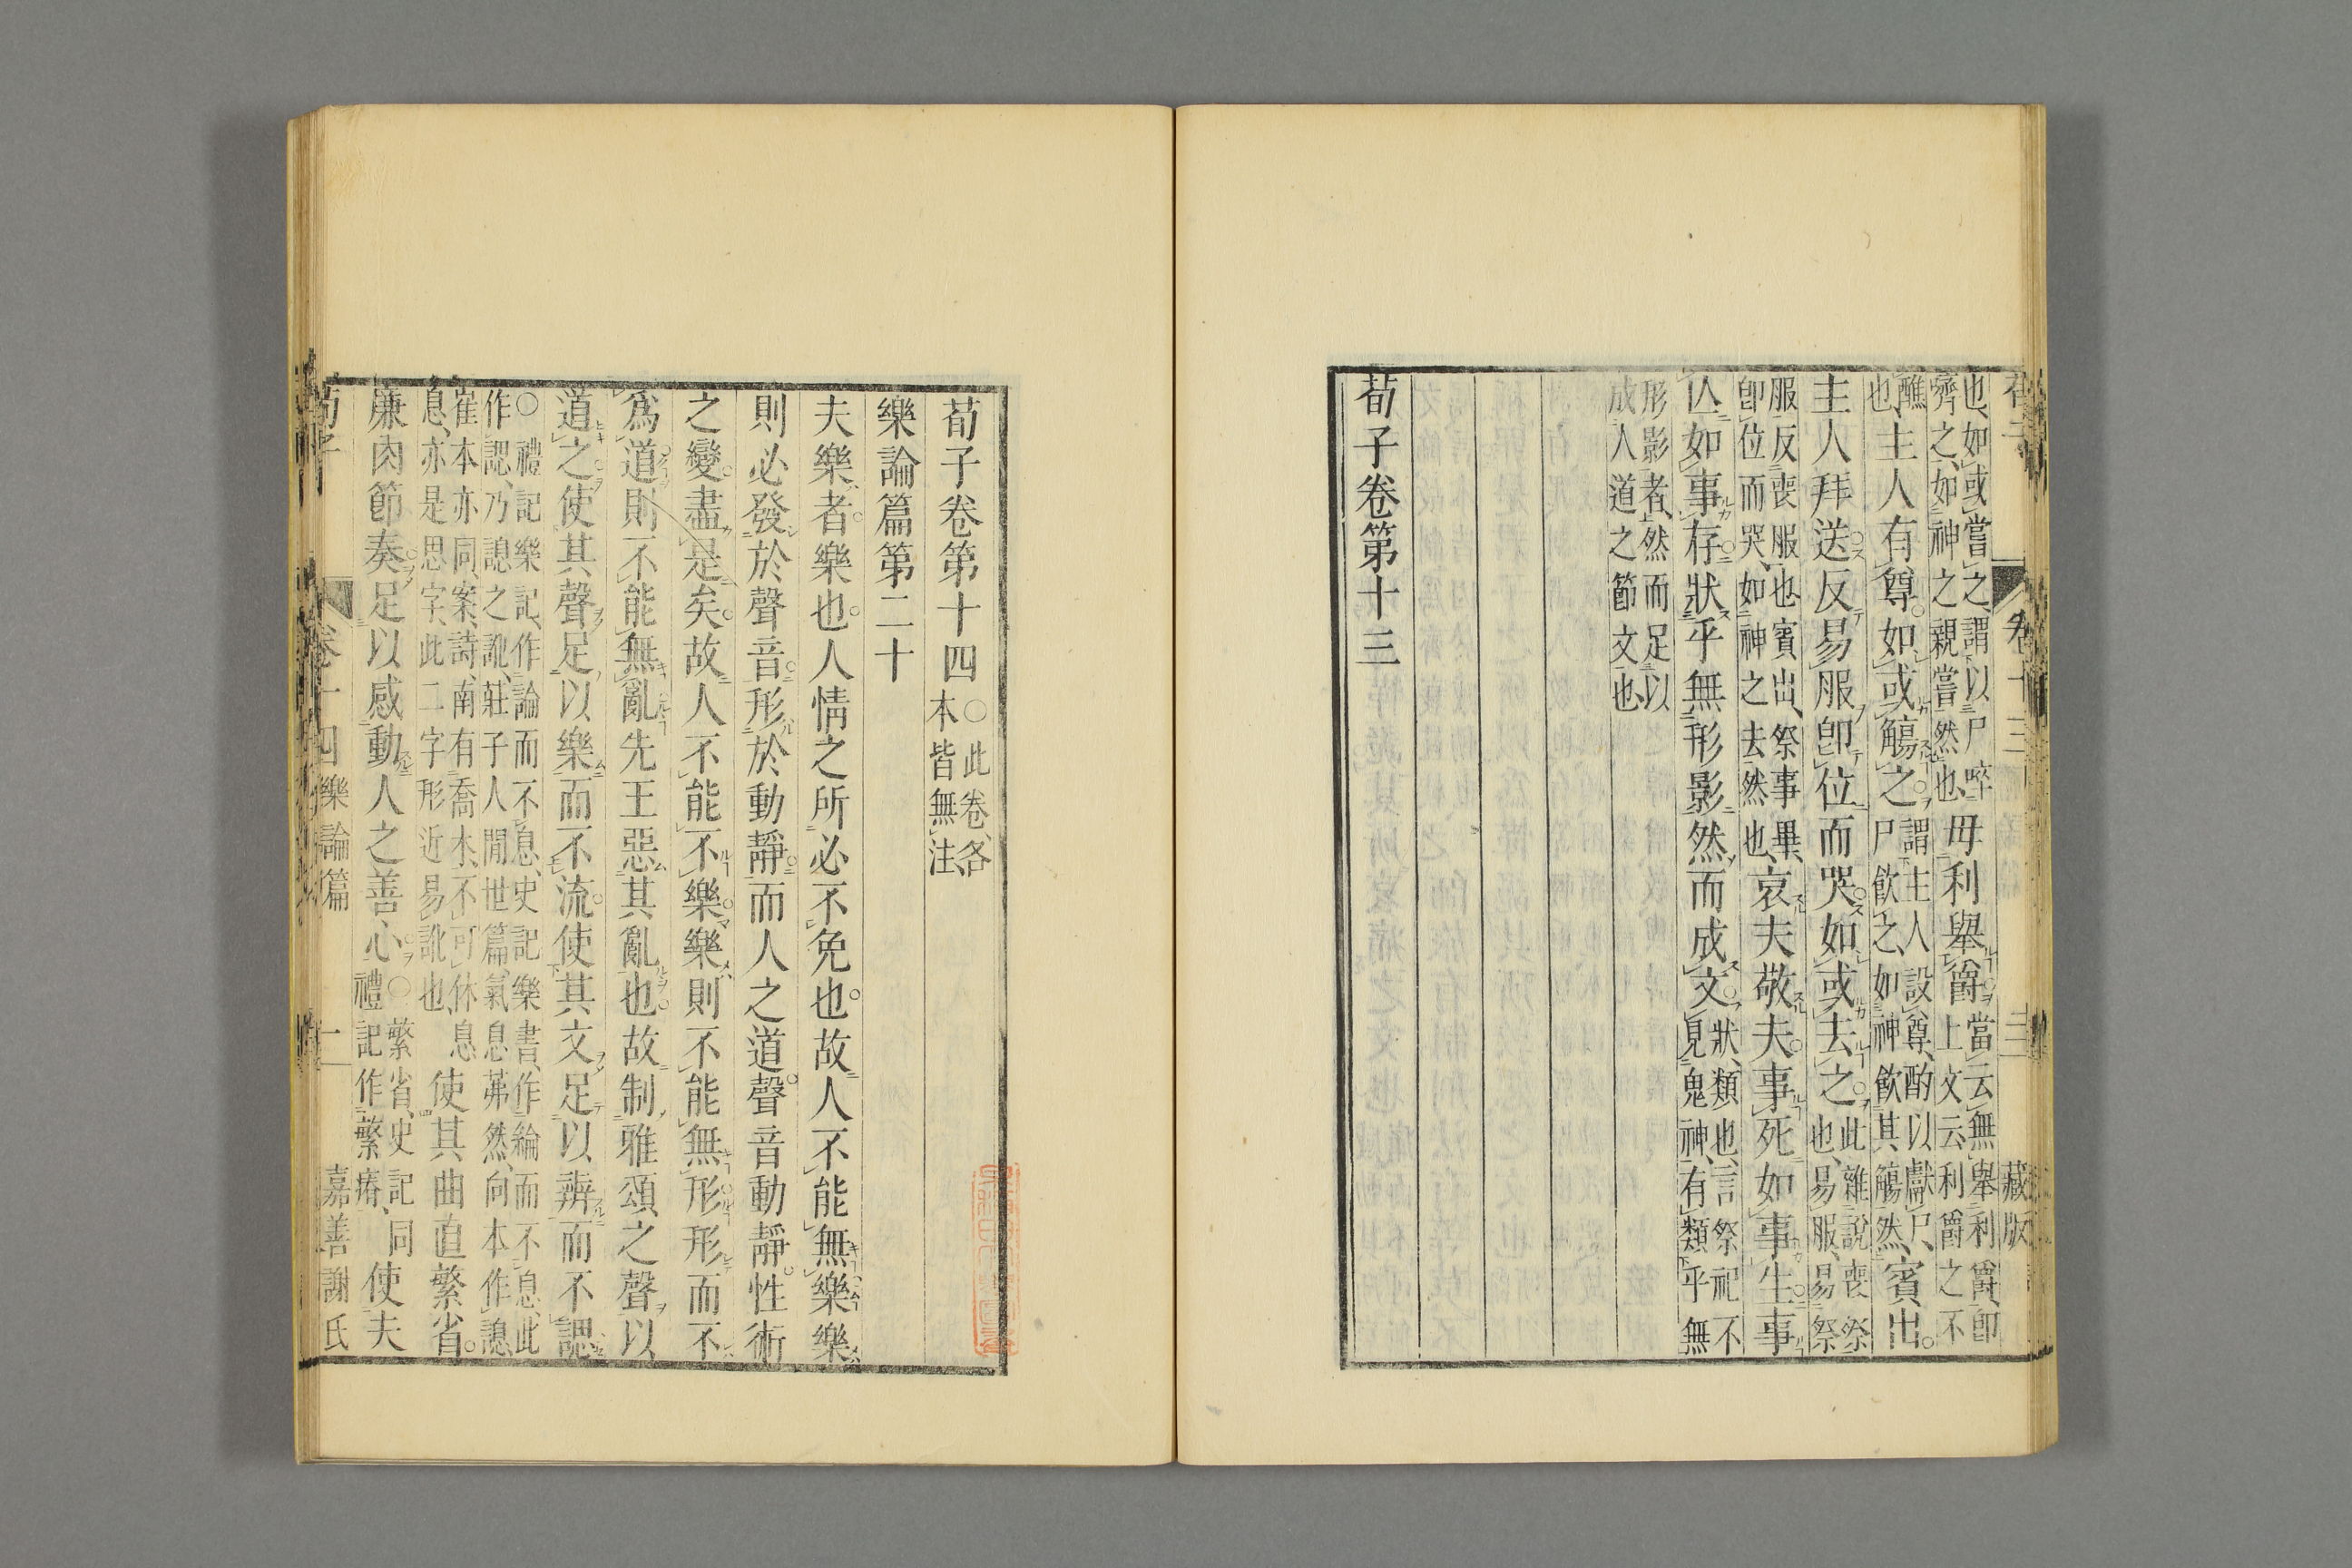 也如或嘗之謂以尸啐
嚌之如神之親嘗然也毋利舉爵當云無舉利爵卽
上文云利爵之不
醮也主人有尊如或觴之謂主人設尊酌以獻尸
尸飮之如神飮其觴然賓出
主人拜送反易服卽位而哭如或去之此雜說喪祭
也易服易祭
服反喪服也賓出祭事畢
卽位而哭如神之去然也哀夫敬夫事死如事生事
亾如事存狀乎無形影然而成文狀類也言祭祀不
見鬼神有類乎無
形影者然而足以
成人道之節文也
荀子卷第十三
卷十三
三
藏版
荀子卷第十四○此卷各
本皆無注
樂論篇第二十
夫樂者樂也人情之所必不免也故人不能無樂樂
則必發於聲音形於動靜而人之道聲音動靜性術
之變盡是矣故人不能不樂樂則不能無形形而不
爲道則不能無亂先王惡其亂也故制雅頌之聲以
道之使其聲足以樂而不流使其文足以辨而不諰
○禮記樂記作論而不息史記樂書作綸而不息此
作諰乃諰之訛莊子人閒世篇氣息茀然向本作諰
崔本亦同案詩南有喬木不可休息
息亦是思字此二字形近易訛也使其曲直繁省
廉肉節奏足以感動人之善心○繁省史記同
禮記作繁瘠使夫
荀子
卷十四樂論篇
一
嘉善謝氏